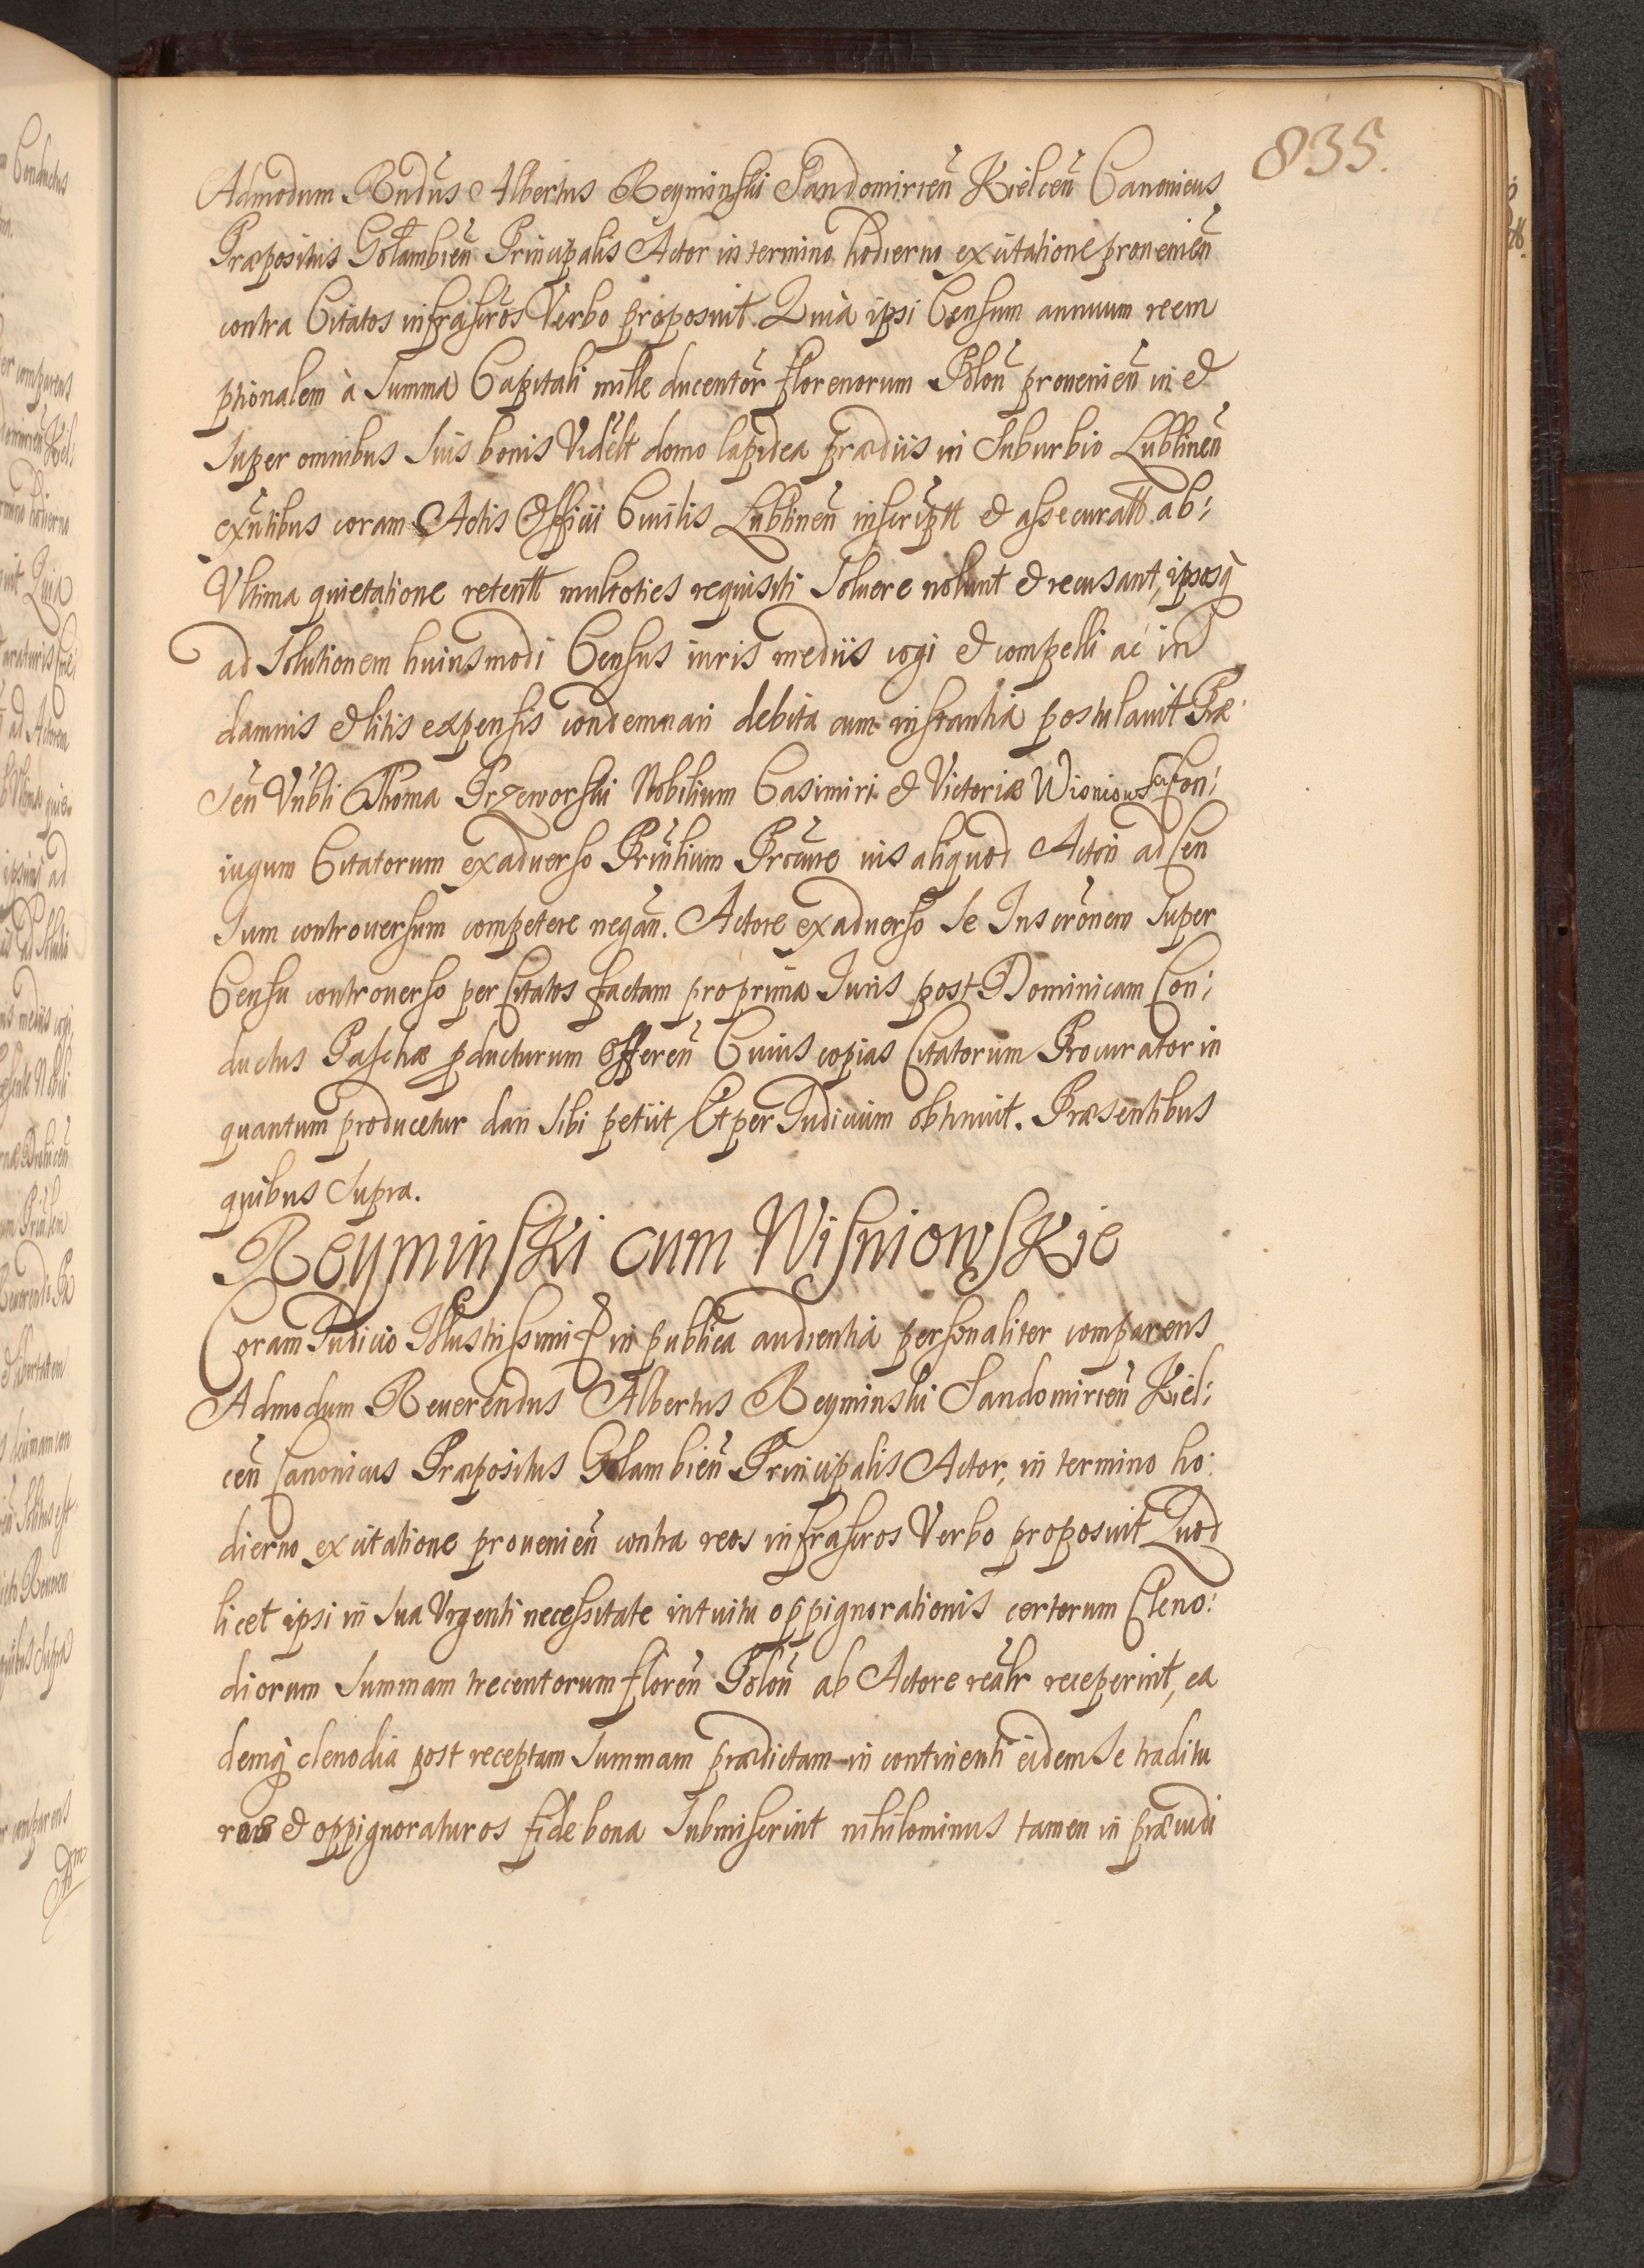 835.
Admodum Rndus Albertus Reyminski Sandomirień Kielceń Canonicus
Præpositus Gołambień Principalis Actor in termino hodierno ex citatione provenień
contra Citatos infrascros Verbo proposuit. Quia ipsi Censum annuum reem
ptionalem à Summa Capitali mille ducentor florenorum Polon provenień in et
super omnibus suis bonis Videlt domo lapidea prædiis in suburbio Lublineń
exntibus coram Actis Officii Civilis Lublineń inscriptt et assecuratt ab:
Ultima quietatione retentt multoties requisiti Soluere nolunt et recusant, ipsosq
ad Solutionem huiusmodi Census iuris mediis cogi et compelli ac in
damnis et litis expensis condemnari debita cum instantia postulavit Præ:
sen Vnbli Thoma Przeworski Nobilium Casimiri et Victoriæ Wioniowsk Con:
iugum Citatorum ex adverso Prinlium Procure ius aliquod Actori ad Cen
sum controversum competere negań. Actore ex adverso se Inscronem super
Censu controverso per Citatos factam pro prima Juris post Dominicam Con:
ductus Paschæ pducturum offereń Cuius copias Citatorum Procurator in
quantum producetur dari sibi petiit Et per Judicium obtinuit. Præsentibus
quibus supra.
Reyminski cum Wisniowskie
Coram Judicio Illustrissimi P in publica audientia personaliter comparens
Admodum Reverendus Albertus Reyminski Sandomirień Kiel:
ceń Canonicus Præpositus Golambień Principalis Actor, in termino ho:
dierno ex citatione provenień contra reos infrascros Verbo proposuit Quod
licet ipsi in sua Urgenti necessitate intuitu oppignorationis certorum Cleno:
diorum Summam trecentorum floreń Polon ab Actore realr receperint, ea
demq clenodia post receptam Summam prædictam in continenti eidem se traditu
ros et oppignoraturos fide bona submiserint nihilominus tamen in præiudi